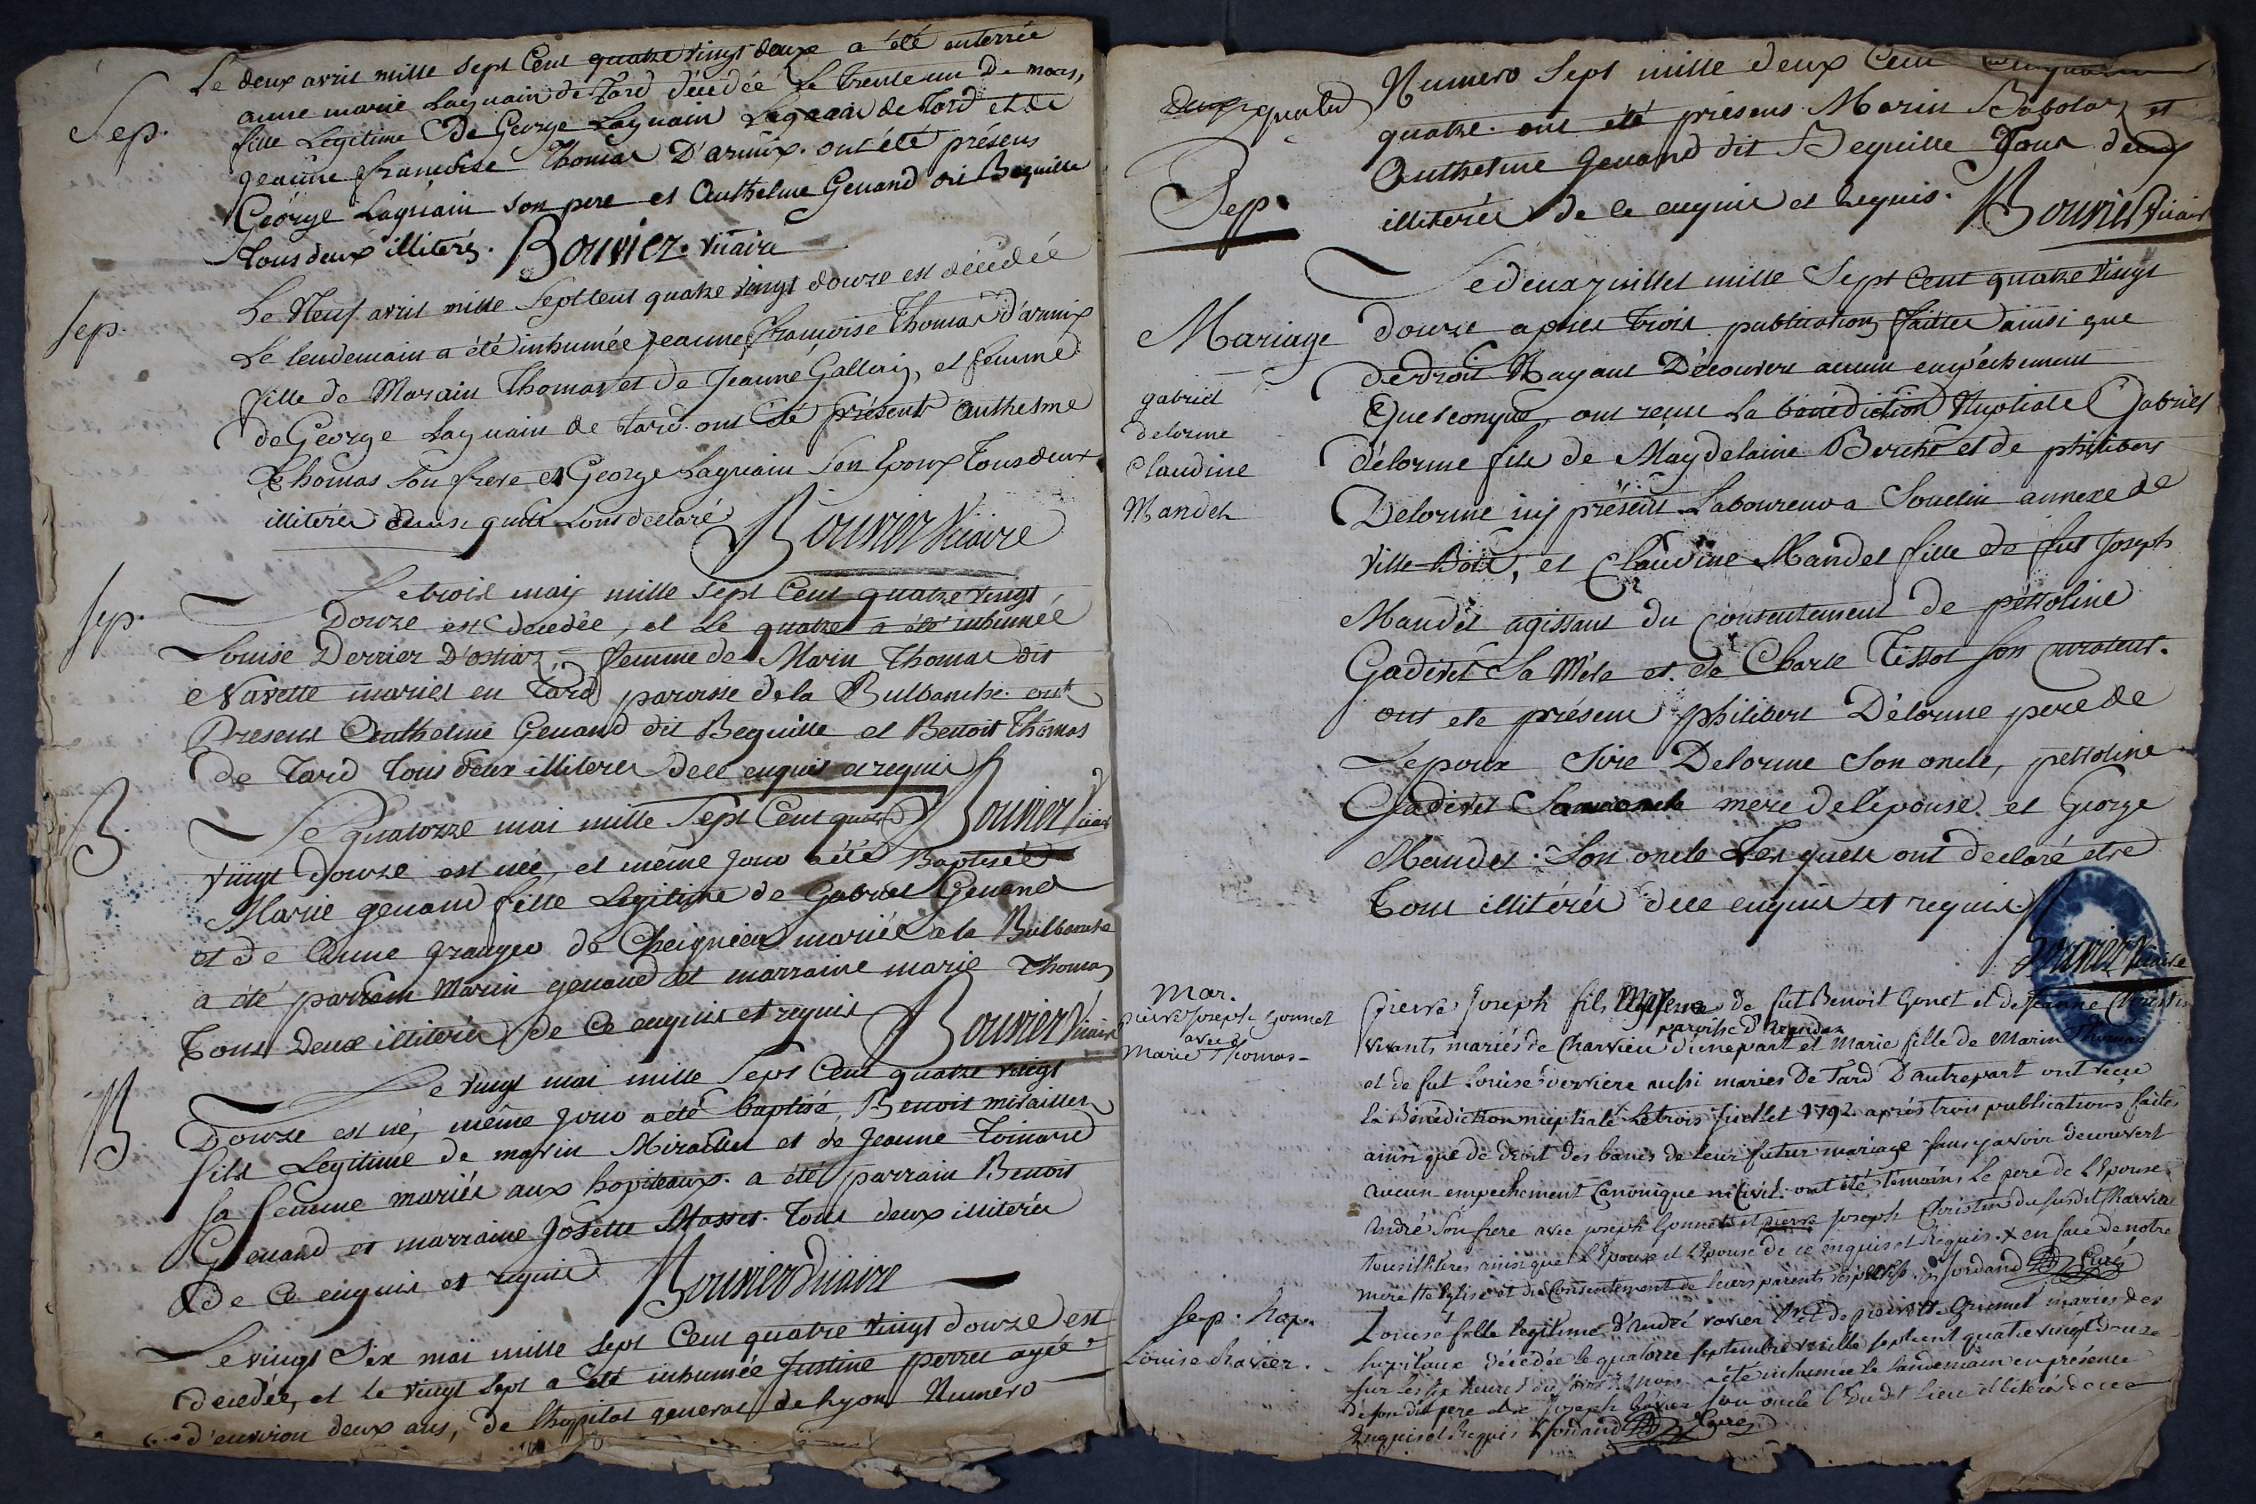 Sep.
Le deux avril mille Sept Cent quatre vingt douze a été enterrée
anne marie Laguain de Tard décédée Le trente un De mars,
fille Legitime De George Laguain de Tard et de
jeanne francoise Thomas D'armix. ont été présens
George Laguain son pere et Anthelme Genand dit Bequille
tous deux illiterés. Bouvier. vicaire
sep.
Le Neuf avril mille Sept Cent quatre vingt douze est décédée
Le lendemain a été inhumée jeanne francoise Thomas d'armix
fille de Marain Thomas et de Jeanne Gallein, et femme
de George Laguain de tard. ont été présent anthelme
Thomas son frere et George Laguain Son Epoux tous deux
illiterés ainsi qu'ils L'ont declaré Bouvier Vicaire
sep.
Le trois may mille sept Cent quatre vingt
Douze est decedée, et Le quatre a été inhumée
Louise Derrier D'ostiaz, femme de Marin Thomas dit
Navette mariés en Tard paroisse de la Bulbanche. ont
Presens Anthelme Genand dit Bequille et Benoit Thomas
de Tard tous deux illiteres de ce enquis et requis
Bouvier Vicaire
B.
Le quatorze mai mille Sept Cent quatre
vingt douze est née, et même jour a été Baptisée
Marie genand fille Legitime de Gabriel Genand
et de Anne grange de Cheignieu mariés a la Bulbanche
a été parrain Marin genand et marraine marie Thomas
Tous Deux illiterés de Ce enquis et requis Bouvier Vicaire
B
Le vingt mai mille Sept Cent quatre vingt
Douze est né, même jour a été baptisé, Benoit mirailler
fils Legitime de marin Mirailler et de Jeanne Toinard
sa femme mariés aux hopiteaux. a été parrain Benoit
Genand et marraine Josette Masset. Tous deux illiterés
de Ce enquis et requis Bouvier Vicaire
Le vingt Six mai mille Sept Cent quatre vingt douze est
decedée, et le vingt sept a été inhumée Justine perret agée
d'environ deux ans, de l'hopital general de Lyon Numero
Numero Sept mille deux Cent
quatre. ont été présens Marin et
Anthelme Genand dit Bequille Tous deux
illiterés de ce enquis et requis. Bouvier Vicaire
Sep.
Le deux juillet mille Sept Cent quatre vingt
Mariage
gabriel
delorme
Claudine
Mandet
douze apres trois publications faittes ainsi que
de droit N'ayant Découvert aucun empêchement
Quesconque, ont reçu La bénédiction Nuptiale Gabriel
délorme fils de Magdelaine Berthé et de philibert
Delorme icy présent Laboureur a Soudin annexe de
Ville Bois, et Claudine Mandet fille de fut Joseph
Mandet agissant du Consentement de pétroline
Gaderet Sa Mére et de Charle Tissot Son curateur.
ont eté présent philibert Délorme pere de
Lepoux Sire Delorme Son oncle, pétroline
Gaderet mere de l'épouse. et George
Mandet Son oncle Les quels ont declaré etre
Tous illitérés de ce enquis et requis.
Bouvier Vicaire
Mar.
pierre Joseph Gonnet
avec
Marie Thomas
pierre Joseph fils legitime de fut Benoit Gonet et de Jeanne Christin
paroisse d'
vivants mariés de Charvieu d'une part et Marie fille de Marin Thomas
et de fut Louise verriere aussi mariés De Tard D'autre part ont reçu
la Bénédiction nuptiale Le trois Juillet 1792. aprés trois publications faites
ainsi que de droit des bancs de leur futur mariage sans y avoir decouvert
aucun empechement Canonique ni Civil. ont été témoins Le pere de L'Epouse
andré Son frere avec joseph Gonnet et pierre Joseph Christin du susdit Charvieu
tous illiteres ainsi que L'Epoux et L'Epouse de ce enquis et Requis. x en face de notre
mere Ste Eglise et du Consentement de leurs parents respectifs. Jordand Curé
Sep. hop.
Louise Ravier.
Louise fille legitime d'André ravier et de pierrette Grumel mariés des
hopitaux décédée le quatorze septembre mille sept cent quatre vingt douze
sur les six heures du a été inhumée le landemain en présence
de son dit pere et de joseph Ravier son oncle dudit lieu illiterés de ce
Enquis et Requis Jordand Curé